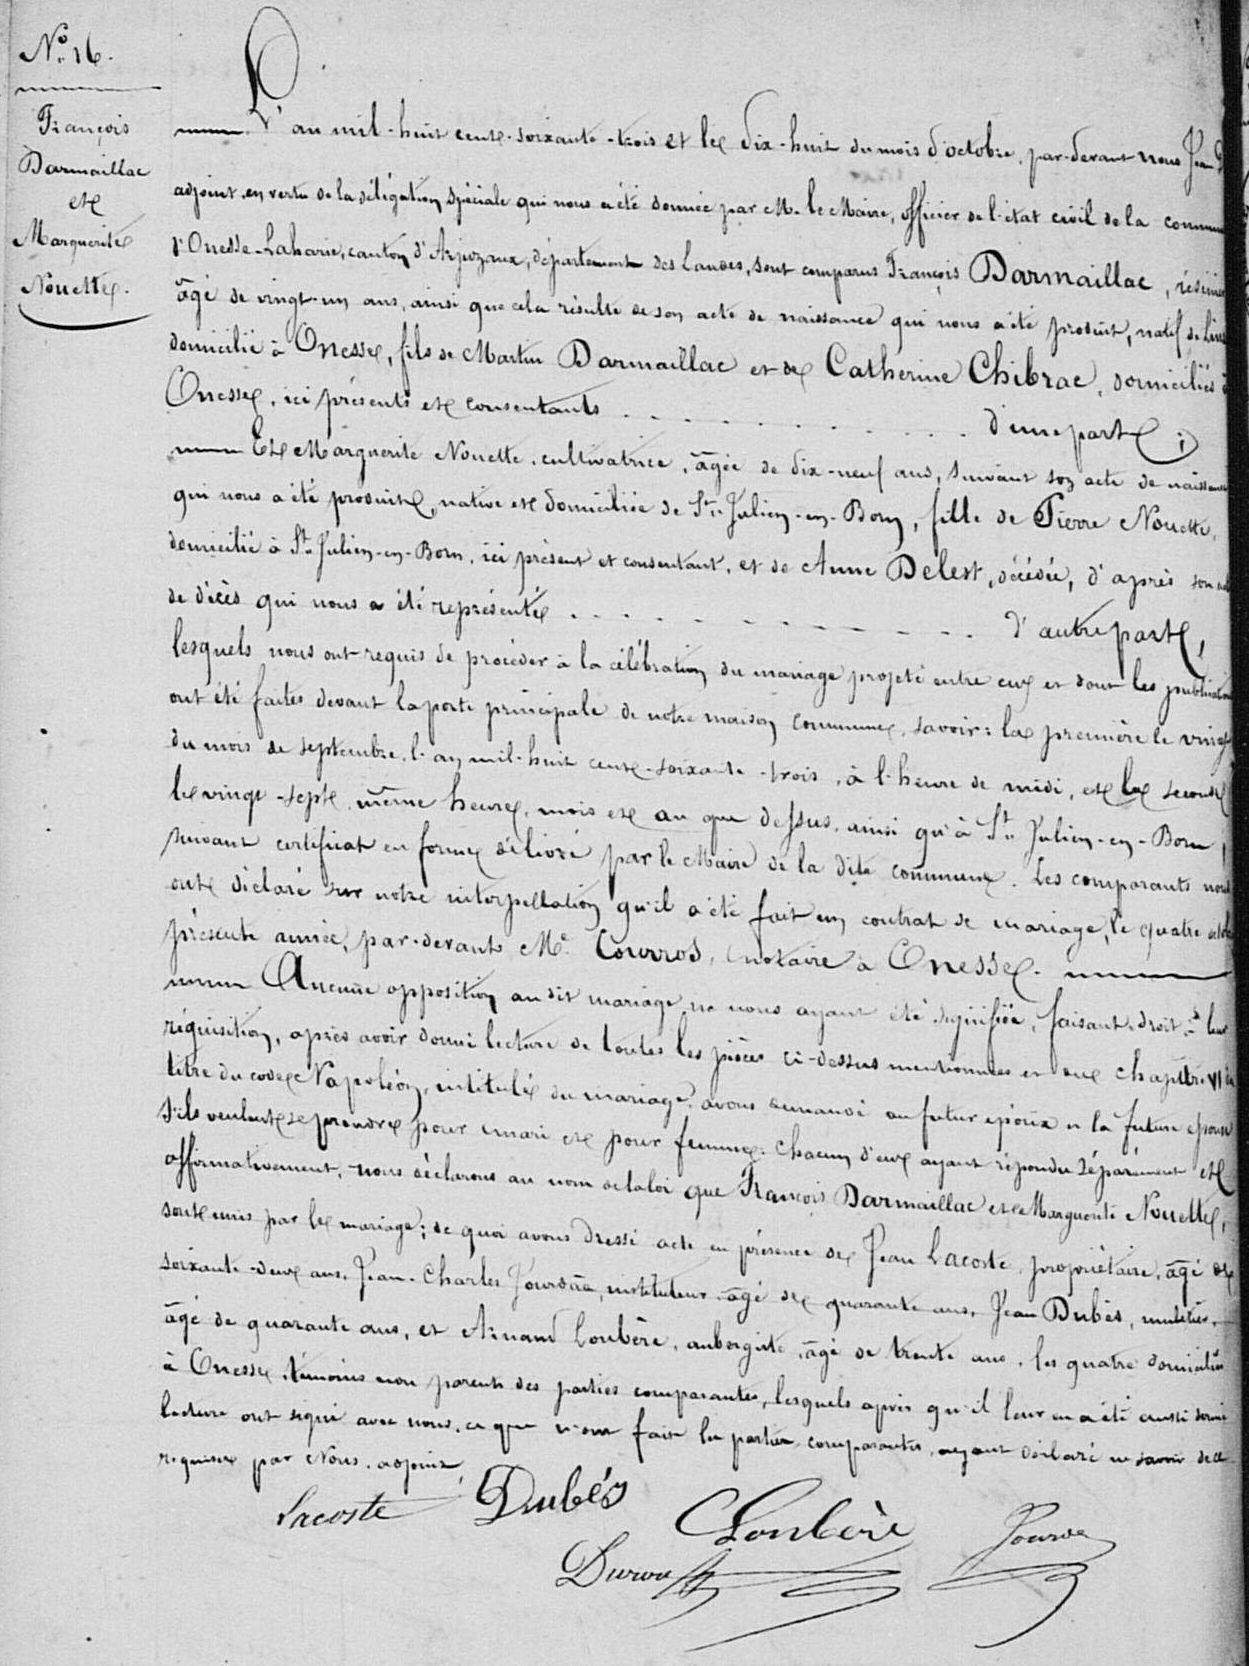 No. 16.
François
Darmaillac
et
Marguerite
Nouette.
L'an mil-huit cent-soixante-trois et le dix-huit du mois d'octobre, par-devant nous Jean
adjoint, en vertu de la délégation spéciale qui nous a été donnée par M. le Maire, officier de l'état civil de la commune
d'Onesse-Laharie, canton d'Arjuzanx, département des Landes, sont comparus François Darmaillac, résinier
âgé de vingt-un ans, ainsi que cela résulte de son acte de naissance qui nous a été produit, natif de
domicilié à Onesse, fils de Martin Darmaillac et de Catherine Chibrac, domiciliés à
Onesse, ici présents et consentants d'une part;
Et Marguerite Nouette, cultivatrice, âgée de dix-neuf ans, suivant son acte de naissance
qui nous a été produit, native et domiciliée de St. Julien-en-Born, fille de Pierre Nouette,
domicilié à St. Julien-en-Born, ici présent et consentant, et de Anne Delest, décédée, d'après son acte
de décès qui nous a été représenté d'autre part,
lesquels nous ont requis de procéder à la célébration du mariage projeté entre eux et dont les publications
ont été faites devant la porte principale de notre maison commune, savoir: la première le vingt
du mois de septembre, l'an mil-huit cent-soixante-trois, à l'heure de midi, et la seconde
le vingt-sept, même heure, mois et an que dessus, ainsi qu'à St. Julien-en-Born,
suivant certificat en forme délivré par le Maire de la dite commune. Les comparants nous
ont déclaré sur notre interpellation qu'il a été fait un contrat de mariage, le quatre octobre
présente année, par-devant Me. Courros, notaire à Onesse.
Aucune opposition au dit mariage ne nous ayant été signifiée, faisant droit à leur
réquisition, après avoir donné lecture de toutes les pièces ci-dessus mentionnées et du chapitre VI du
titre du code Napoléon, intitulé du mariage, avons demandé au futur époux et la future épouse
s'ils veulent se prendre pour mari et pour femme: chacun d'eux ayant répondu séparément et
affirmativement, nous déclarons au nom de la loi que François Darmaillac et Marguerite Nouette,
sont unis par le mariage; de quoi avons dressé acte en présence de Jean Lacoste, propriétaire, âgé de
soixante-deux ans, Jean-Charles Jourdâa, instituteur, âgé de quarante ans, Jean Dubés, muletier,
âgé de quarante ans, et Arnaud Loubère, aubergiste, âgé de trente ans, les quatre domiciliés
à Onesse, témoins non parents des parties comparantes, lesquels après qu'il leur en a été aussi donné
lecture ont signé avec nous, ce que n'ont fait les parties comparantes, ayant déclaré ne savoir de ce
requises par Nous, adjoint.
Lacoste Dubés Loubère